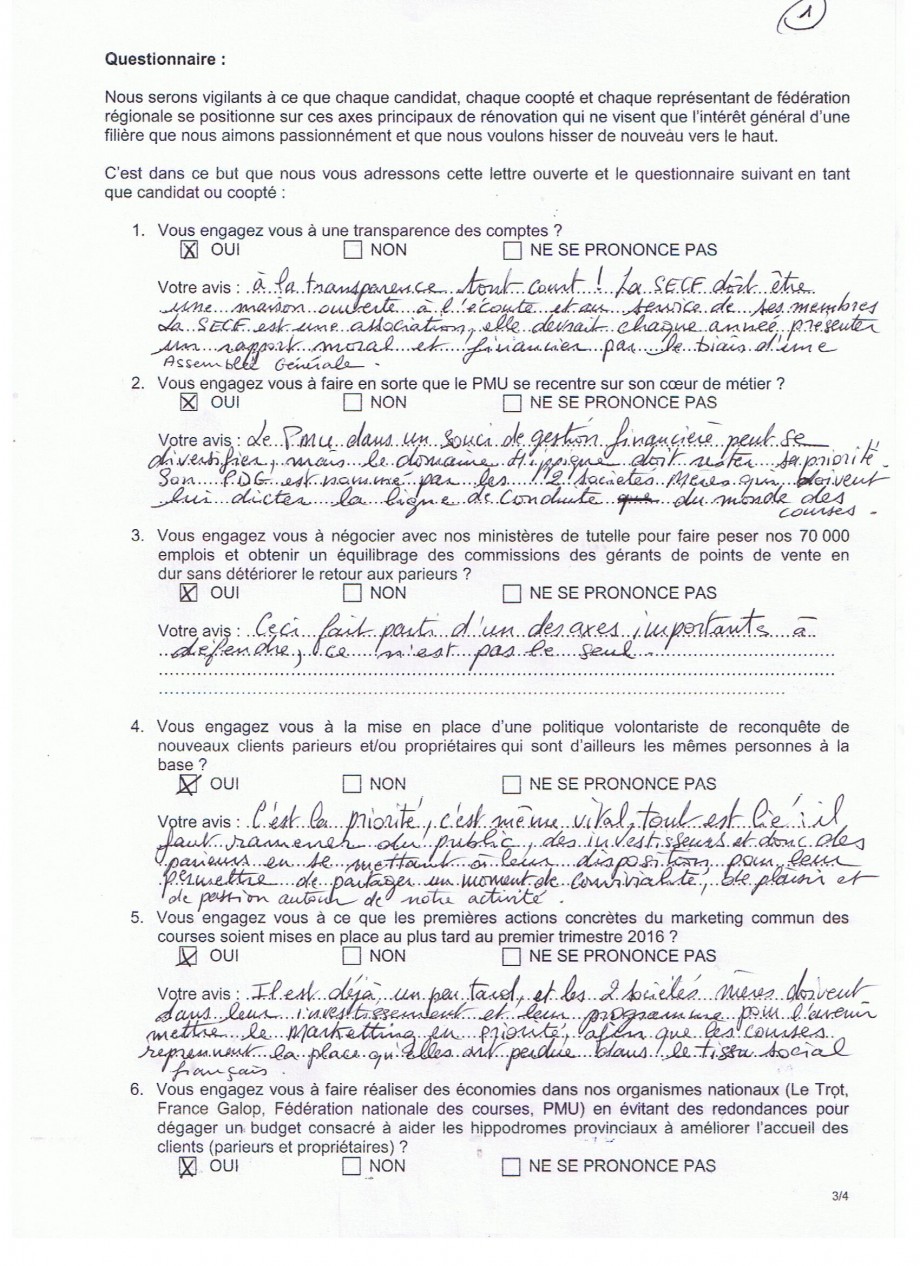 1
Questionnaire :
Nous serons vigilants à ce que chaque candidat, chaque coopté et chaque représentant de fédération
régionale se positionne sur ces axes principaux de rénovation qui ne visent que l'intérêt général d'une
filière que nous aimons passionnément et que nous voulons hisser de nouveau vers le haut.
C'est dans ce but que nous vous adressons cette lettre ouverte et le questionnaire suivant en tant
que candidat ou coopté :
1. Vous engagez vous à une transparence des comptes ?
X OUI NON NE SE PRONONCE PAS
Votre avis : à la transparence tout court ! La SECF doit être
une maison ouverte à l'écoute et au service de ses membres
La SECF est une association, elle devrait chaque année présenter
un rapport moral et financier par le biais d'une
Assemblée Générale.
2. Vous engagez vous à faire en sorte que le PMU se recentre sur son cœur de métier ?
X OUI NON NE SE PRONONCE PAS
Votre avis : Le PMU dans un souci de gestion financière peut se
diversifier, mais le domaine Hippique doit rester sa priorité.
Son PDG est nommé par les 2 sociétés Mères qui doivent
lui dicter la ligne de conduite du monde des
courses.
3. Vous engagez vous à négocier avec nos ministères de tutelle pour faire peser nos 70 000
emplois et obtenir un équilibrage des commissions des gérants de points de vente en
dur sans détériorer le retour aux parieurs ?
X OUI NON NE SE PRONONCE PAS
Votre avis : Ceci fait parti d'un des axes importants à
défendre, ce n'est pas le seul.
4. Vous engagez vous à la mise en place d'une politique volontariste de reconquête de
nouveaux clients parieurs et/ou propriétaires qui sont d'ailleurs les mêmes personnes à la
base ?
X OUI NON NE SE PRONONCE PAS
Votre avis : C'est la priorité, c'est même vital, tout est lié : il
faut ramener du public, des investisseurs et donc des
parieurs en se mettant à leur disposition pour leur
permettre de partager un moment de convivialité, de plaisir et
de passion autour de notre activité.
5. Vous engagez vous à ce que les premières actions concrètes du marketing commun des
courses soient mises en place au plus tard au premier trimestre 2016 ?
X OUI NON NE SE PRONONCE PAS
Votre avis : Il est déjà un peu tard, et les 2 sociétés mères doivent
dans leur investissement et leur programme pour l'avenir
mettre le Marketting en priorité, afin que les courses
reprennent la place qu'elles ont perdue dans le tissu social
français.
6. Vous engagez vous à faire réaliser des économies dans nos organismes nationaux (Le Trot,
France Galop, Fédération nationale des courses, PMU) en évitant des redondances pour
dégager un budget consacré à aider les hippodromes provinciaux à améliorer l'accueil des
clients (parieurs et propriétaires) ?
X OUI NON NE SE PRONONCE PAS
3/4